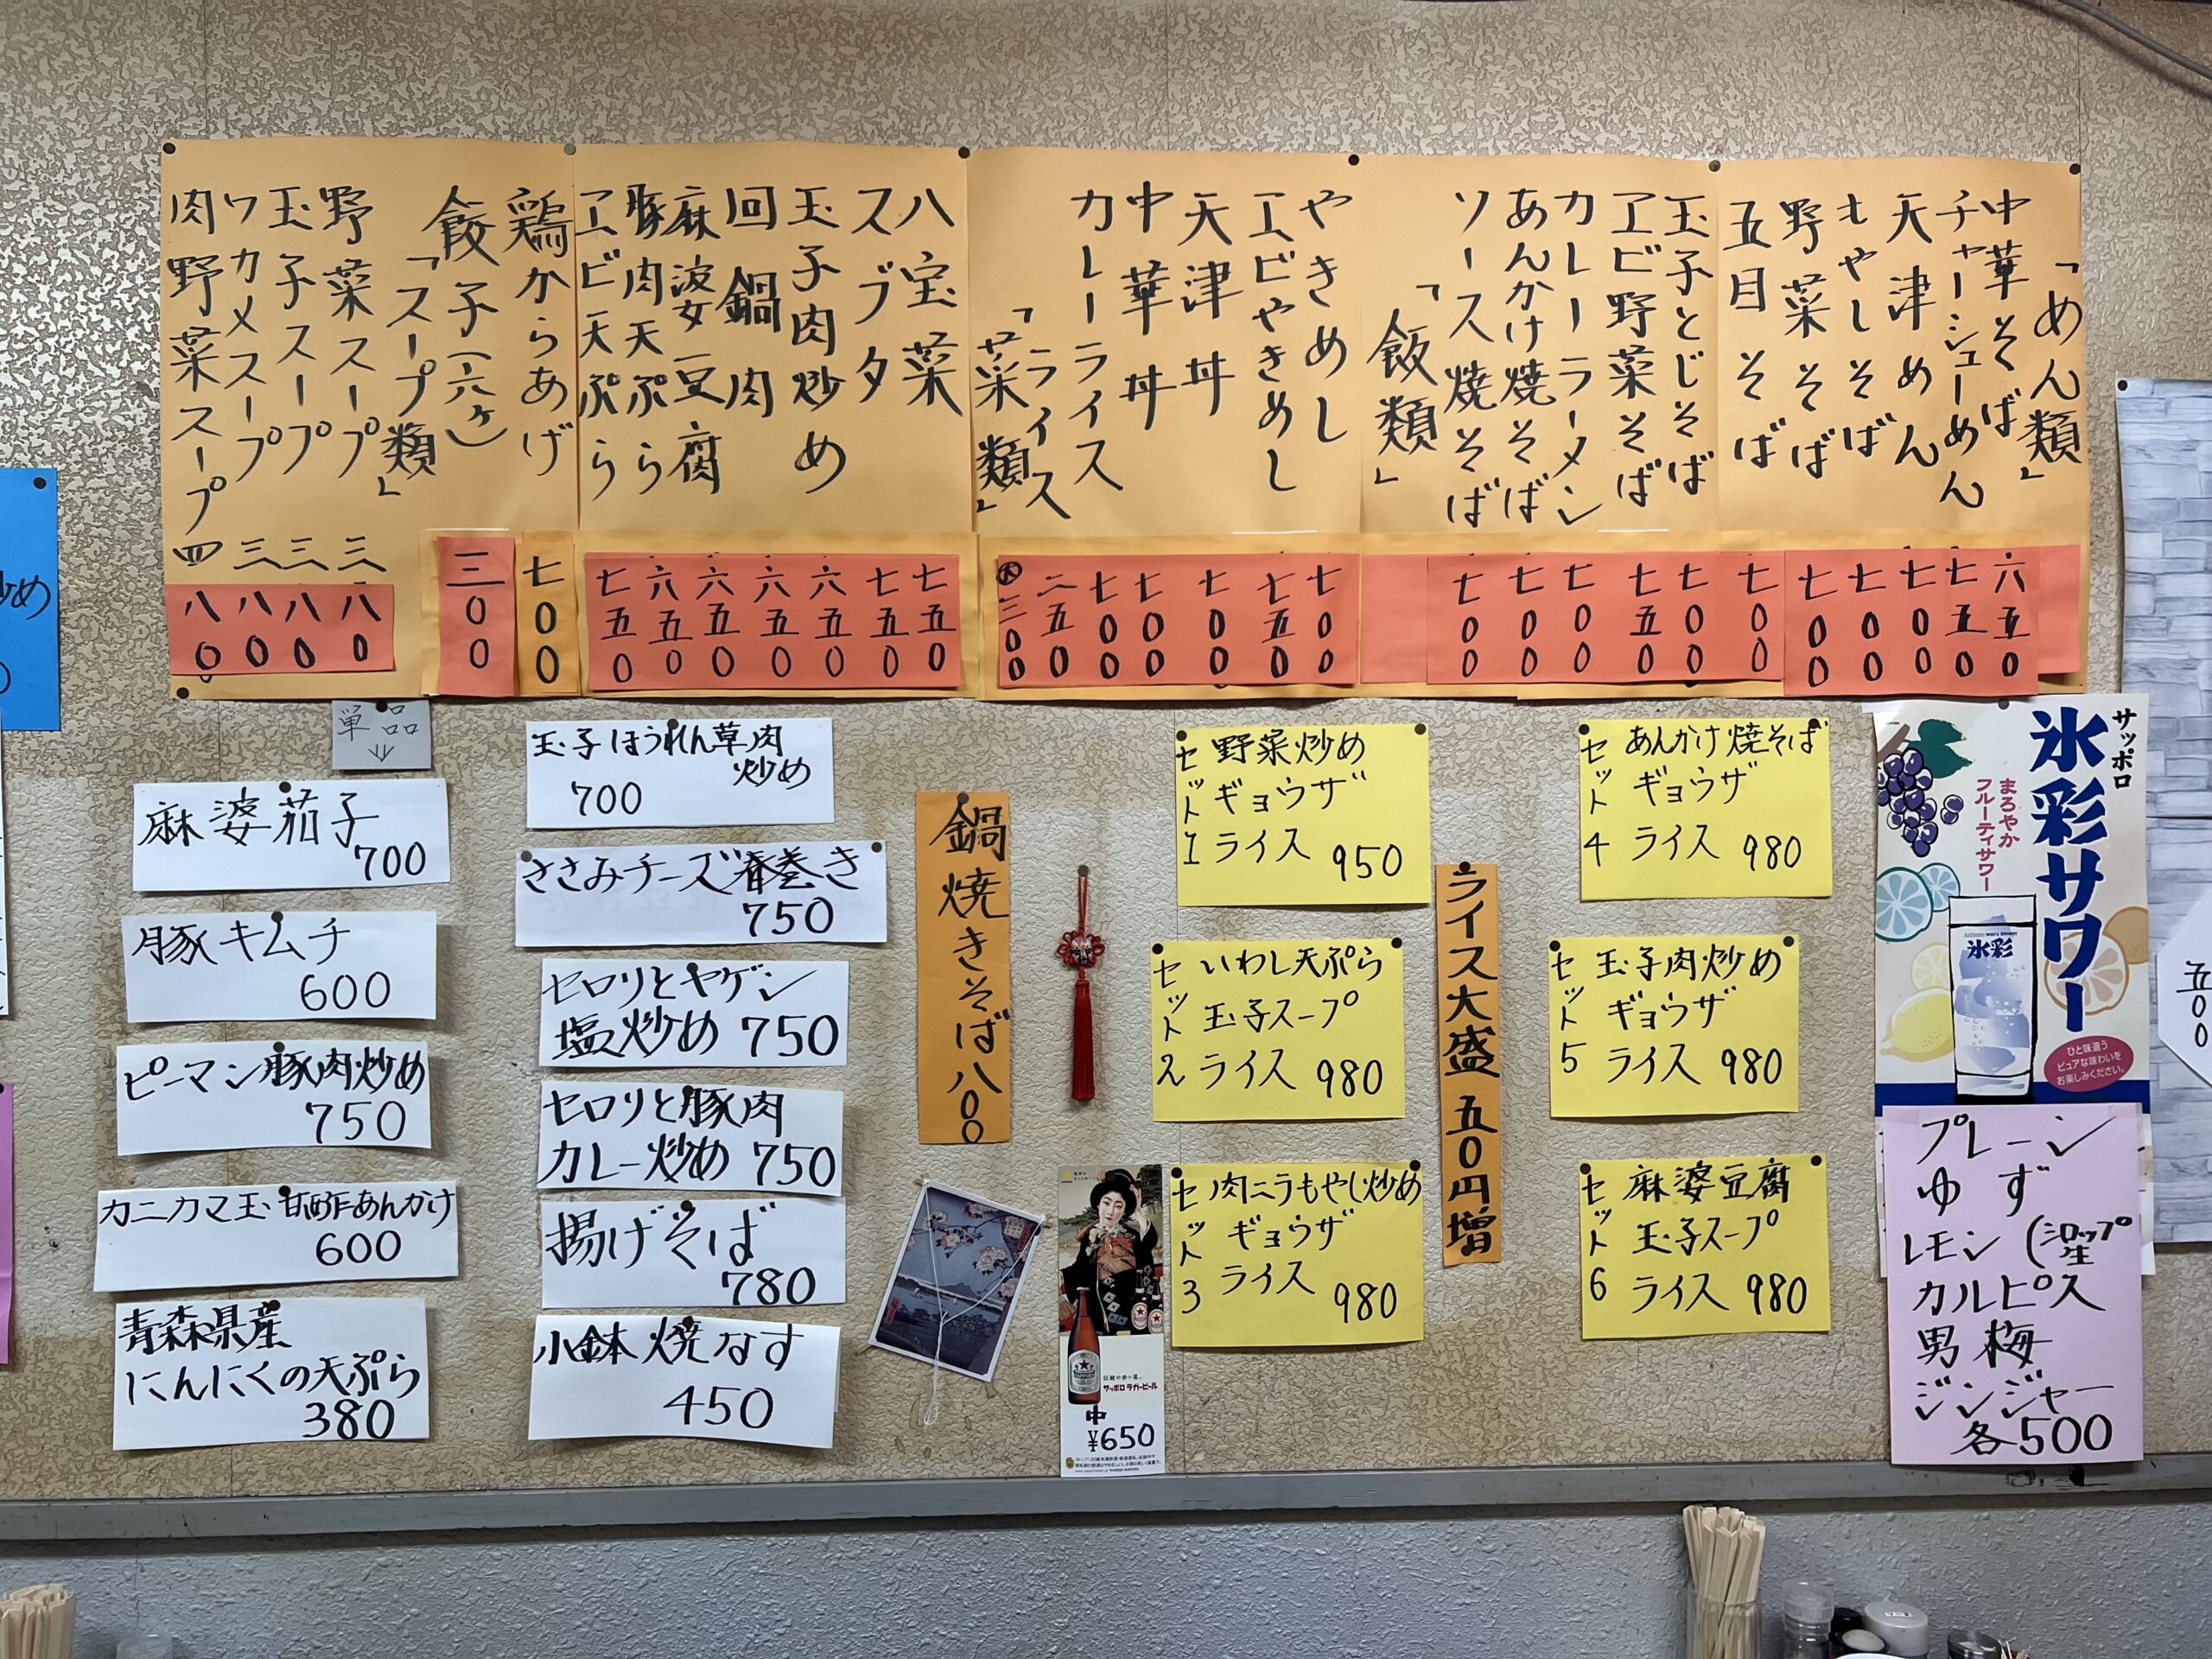 「めん類」
中華そば 六五0
チャーシューめん 七五0
天津めん 七00
もやしそば 七00
野菜そば 七00
五目そば 七00
玉子とじそば 七00
エビ野菜そば 七五0
カレーラーメン 七00
あんかけ焼そば 七00
ソース焼そば 七00
「飯類」
やきめし 七00
エビやきめし 七五0
天津丼 七00
中華丼 七00
カレーライス 七00
ライス 二五0
大三00
「菜類」
八宝菜 七五0
スブタ 七五0
玉子肉炒め 六五0
回鍋肉 六五0
麻婆豆腐 六五0
豚肉天ぷら 六五0
エビ天ぷら 七五0
鶏からあげ 七00
餃子(六ヶ) 三00
「スープ類」
野菜スープ 三八0
玉子スープ 三八0
ワカメスープ 三八0
肉野菜スープ 四八0
単品
↓
麻婆茄子
700
豚キムチ
600
ピーマン豚肉炒め
750
カニカマ玉甘酢あんかけ
600
青森県産
にんにくの天ぷら
380
玉子ほうれん草肉
炒め
700
ささみチーズ春巻き
750
セロリとヤゲン
塩炒め 750
セロリと豚肉
カレー炒め 750
揚げそば
780
小鉢 焼なす
450
鍋焼きそば 八00
セット1
野菜炒め
ギョウザ
ライス 950
セット2
いわし天ぷら
玉子スープ
ライス 980
セット3
肉ニラもやし炒め
ギョウザ
ライス 980
ライス大盛 五0円増
セット4
あんかけ焼そば
ギョウザ
ライス 980
セット5
玉子肉炒め
ギョウザ
ライス 980
セット6
麻婆豆腐
玉子スープ
ライス 980
サッポロラガービール
中
¥650
サッポロ
氷彩サワー
まろやか
フルーティサワー
氷彩
ひと味違う
ピュアな味わいを
お楽しみください。
プレーン
ゆず
レモン(シロップ
生
カルピス
男梅
ジンジャー
各500
五00
炒め